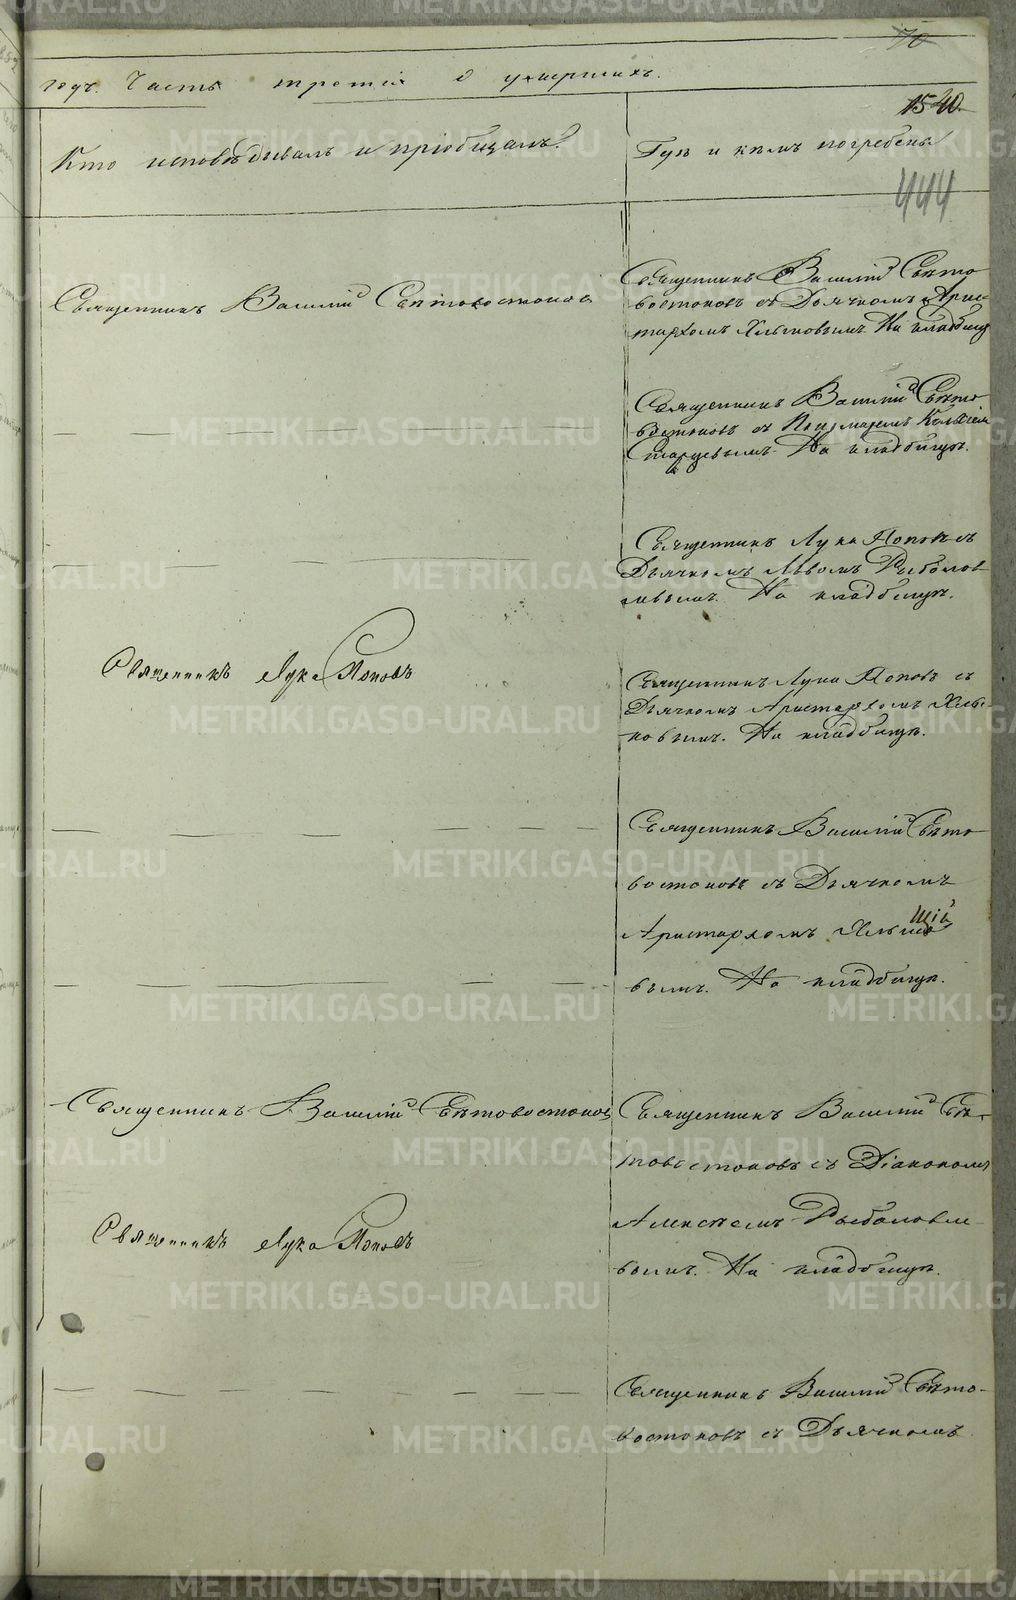 70
годъ. Часть третія о умершихъ.
1540.
Кто исповѣдывалъ и пріобщалъ?
Гдѣ и кѣмъ погребены
444
Священникъ Василій Свѣтовостоковъ
Священникъ Василій Свѣто
востоковъ съ Дьячкомъ Арис-
тархомъ На кладбищѣ
Священникъ Василій Свѣто
востоковъ съ Пономаремъ
Старцевымъ. На кладбищѣ.
Священникъ Лука Поповъ съ
Дьячкомъ Львомъ Рыболов
левымъ. На кладбищѣ.
Священникъ Лука Поповъ
Священникъ Лука Поповъ съ
Дьячкомъ Аристархомъ Хлы-
новымъ. На кладбищѣ.
Священникъ Василій Свѣто
востоковъ съ Дьячкомъ
Аристархомъ
вымъ. На кладбищѣ.
Священникъ Василій Свѣтовостоковъ
Священникъ Василій Свѣ-
товостоковъ съ Діакономъ
Алексѣемъ Рыболовле-
вымъ. На кладбищѣ.
Священникъ Лука Поповъ
Священникъ Василій Свѣто-
востоковъ съ Дьячкомъ
METRIKI.GASO-URAL.RU